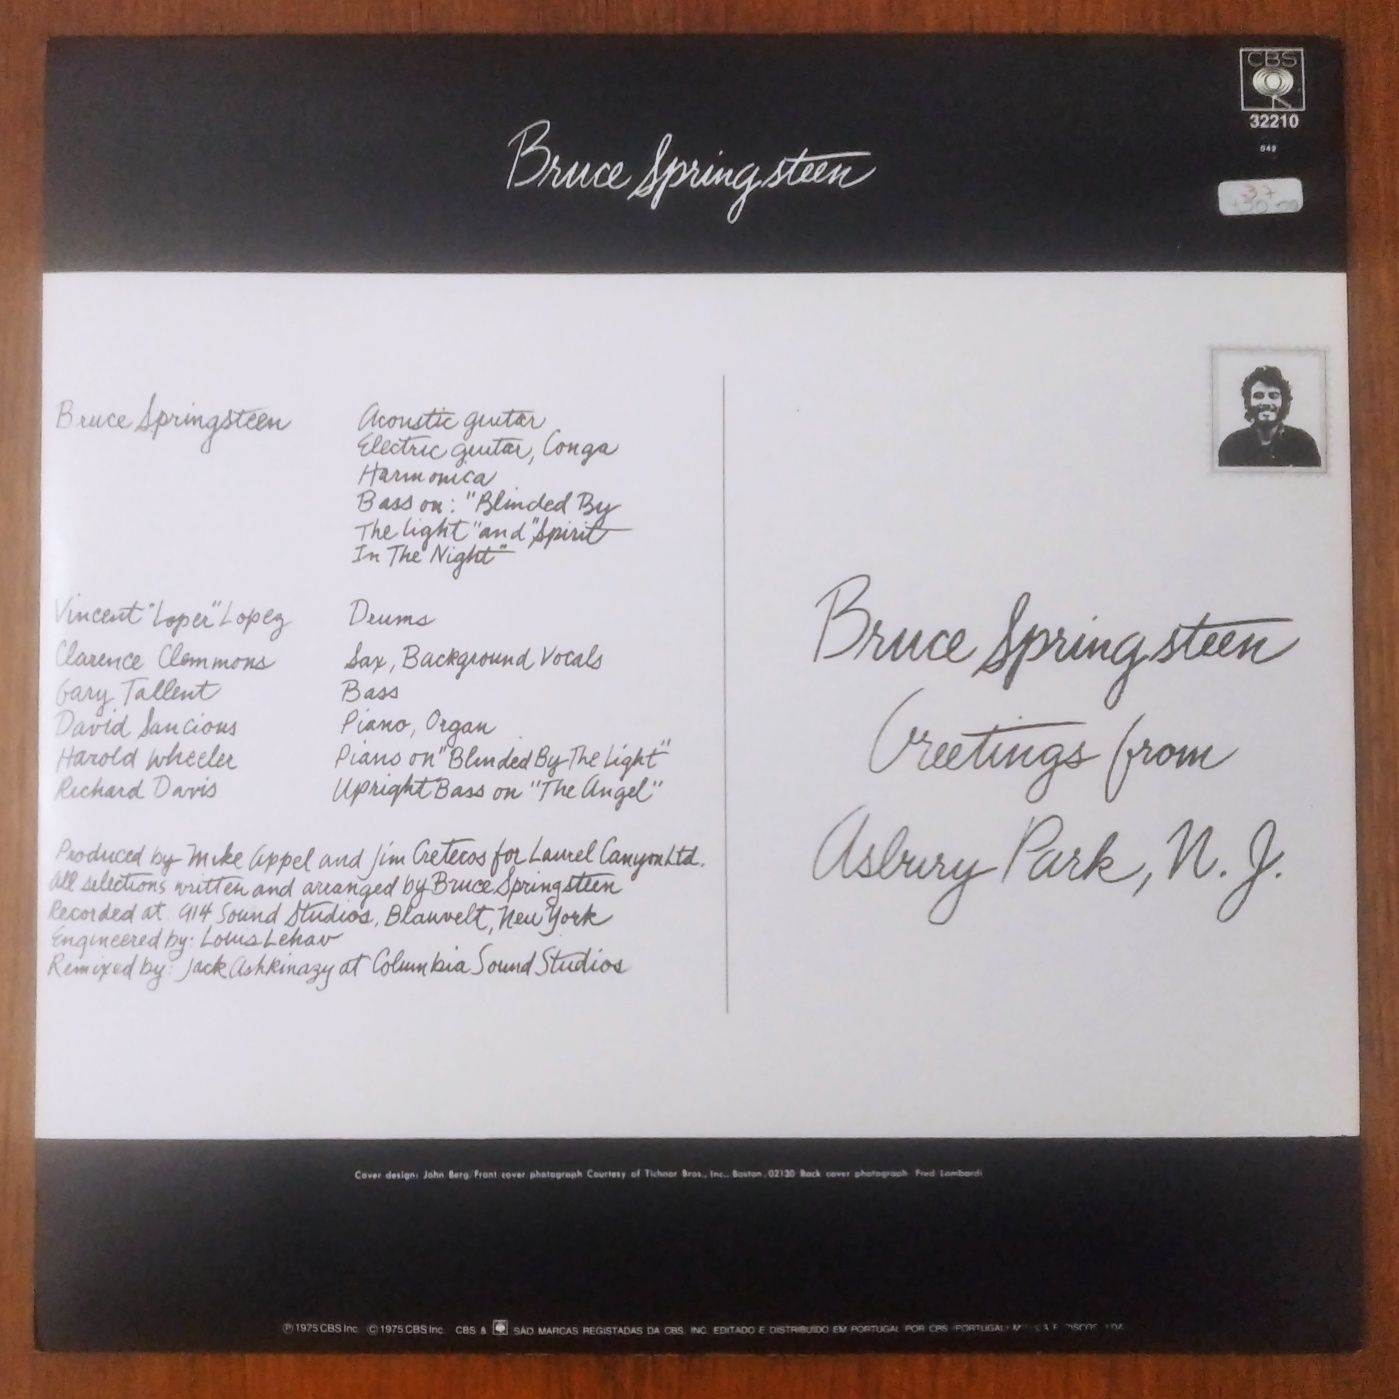 CBS
32210
Bruce Springsteen
Bruce Springsteen Acoustic guitar
Electric guitar, Conga
Harmonica
Bass on: "Blinded By
The Light" and "Spirit
In The Night"
Vincent "Loper" Lopez Drums
Clarence Clemmons Sax, Background Vocals
Gary Tallent Bass
David Sancious Piano, Organ
Harold Wheeler Piano on "Blinded By The Light"
Richard Davis Upright Bass on "The Angel"
Produced by Mike Appel and Jim Cretecos for Laurel Canyon Ltd.
All selections written and arranged by Bruce Springsteen
Recorded at 914 Sound Studios, Blauvelt, New York
Engineered by: Louis Lehav
Remixed by: Jack Ashkinazy at Columbia Sound Studios
Bruce Springsteen
Greetings from
Asbury Park, N.J.
Cover design: John Berg/Front cover photograph Courtesy of Tichnor Bros., Inc., Boston, 02130 Back cover photograph Fred Lombardi
Ⓟ 1975 CBS Inc. © 1975 CBS Inc. CBS & SÃO MARCAS REGISTADAS DA CBS, INC. EDITADO E DISTRIBUÍDO EM PORTUGAL POR CBS (PORTUGAL)